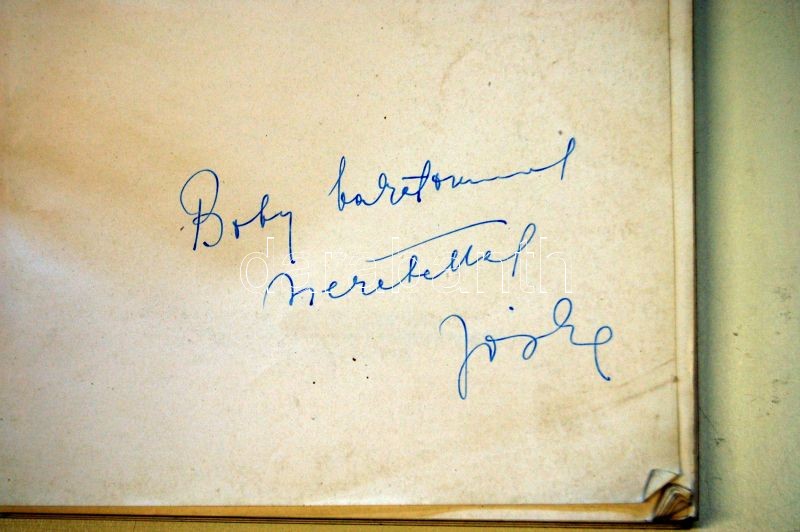 Boby barátomnak
szeretettel
Jóska
darabanth